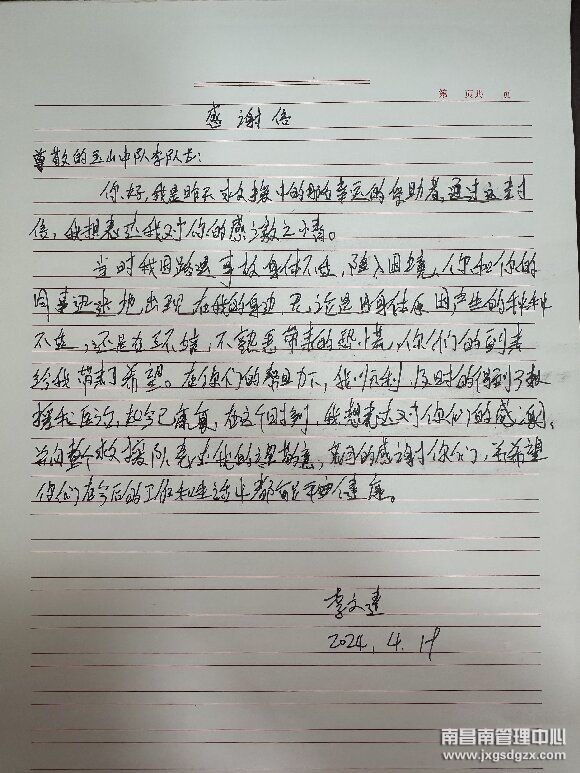 第 页共 页
感谢信
尊敬的玉山中队李队长:
你好,我是昨天求救援中的那名幸运的受助者,通过这封
信,我想表达我对你的感激之情。
当时我因路况事故身体不适,陷入困境,你和你的
同事迅速地出现在我的身边,无论是因身体原因产生的种种
不适,还是在环境,不熟悉带来的恐慌,你们的到来
给我带来了希望。在你们的帮助下,我顺利及时的得到了救
援和医治,如今已康复,在这个时刻,我想表达对你们的感谢,
并向整个救援队表达我的敬意,再次的感谢你们,并希望
你们在今后的工作和生活中都能平安健康。
李文
2024.4.19
南昌南管理中心
www.jxgsdgzx.com